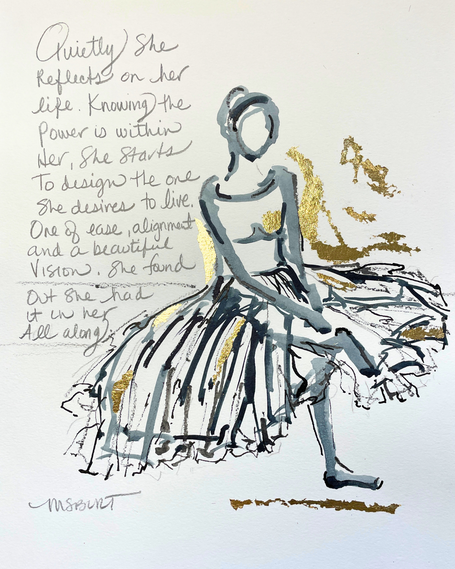 Quietly She
Reflects on her
life. Knowing the
Power is within
Her, She Starts
To design the one
She desires to live.
One of ease, alignment
and a beautiful
Vision. She found
Out She had
it in her
All along.
MSBURT